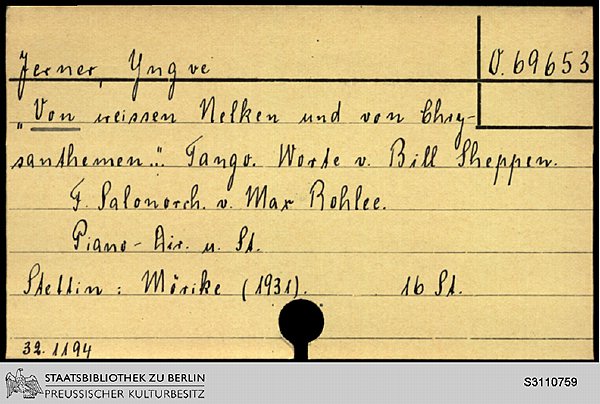 Jerner, Yngve
O. 69653
„Von weissen Nelken und von Chry-
santhemen..." Tango. Worte v. Bill Sheppen.
F. Salonorch. v. Max Rohlee.
Piano-Dir. u. St.
Stettin: Mörike (1931). 16 St.
32. 1194
STAATSBIBLIOTHEK ZU BERLIN
PREUSSISCHER KULTURBESITZ
S3110759